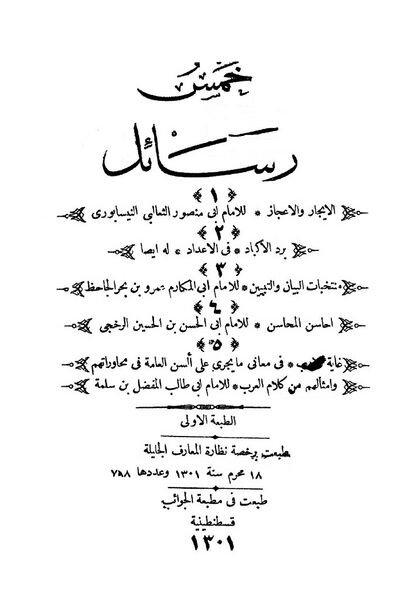 خمس
رسائل
﴿ ١ ﴾
الايجاز والاعجاز * للامام ابى منصور الثعالبى النيسابورى
﴿ ٢ ﴾
برد الاكباد * فى الاعداد * له ايضا
﴿ ٣ ﴾
منتخبات البيان والتبيين * للامام ابى المكارم عمرو بن بحر الجاحظ
﴿ ٤ ﴾
احاسن المحاسن * للامام ابى الحسن بن الحسين الرخجى
﴿ ٥ ﴾
غاية * فى معانى ما يجرى على ألسن العامة فى محاوراتهم
وامثالهم من كلام العرب * للامام ابى طالب المفضل بن سلمة
الطبعة الاولى
طبعت برخصة نظارة المعارف الجليلة
١٨ محرم سنة ١٣٠١ وعددها ٧٨٨
طبعت فى مطبعة الجوائب
قسطنطينية
١٣٠١